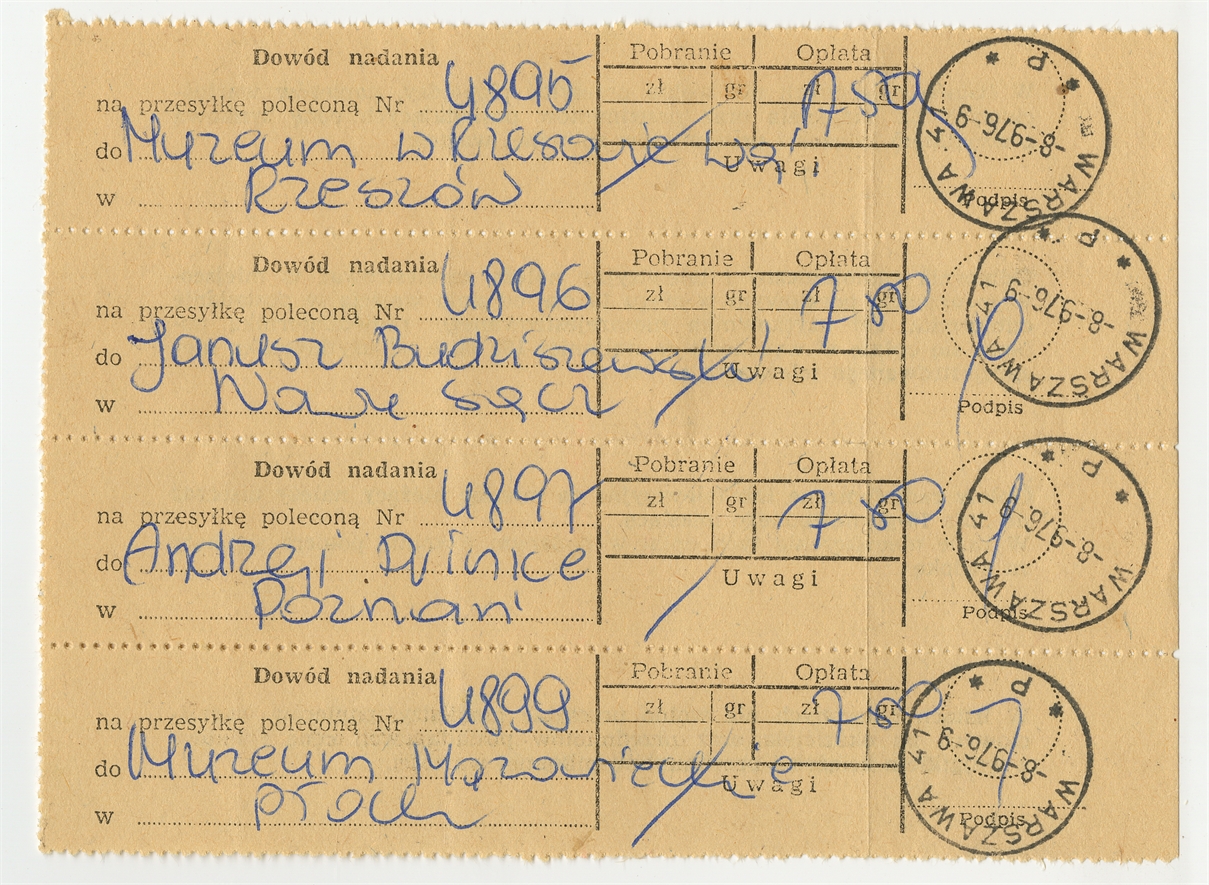 Dowód nadania Pobranie Opłata
na przesyłkę poleconą Nr 4895 zł gr zł gr 7 50
do Muzeum w Rzeszowie Uwagi
w Rzeszów Podpis
WARSZAWA 41 P -8-976-9
Dowód nadania Pobranie Opłata
na przesyłkę poleconą Nr 4896 zł gr zł gr 7 50
do Janusz Budziszewski Uwagi
w Nowy Sącz Podpis
WARSZAWA 41 P -8-976-9
Dowód nadania Pobranie Opłata
na przesyłkę poleconą Nr 4897 zł gr zł gr 7 50
do Andrzej Uwagi
w Poznań Podpis
WARSZAWA 41 P -8-976-9
Dowód nadania Pobranie Opłata
na przesyłkę poleconą Nr 4899 zł gr zł gr 7 50
do Muzeum Mazowieckie Uwagi
w Płock Podpis
WARSZAWA 41 P -8-976-9